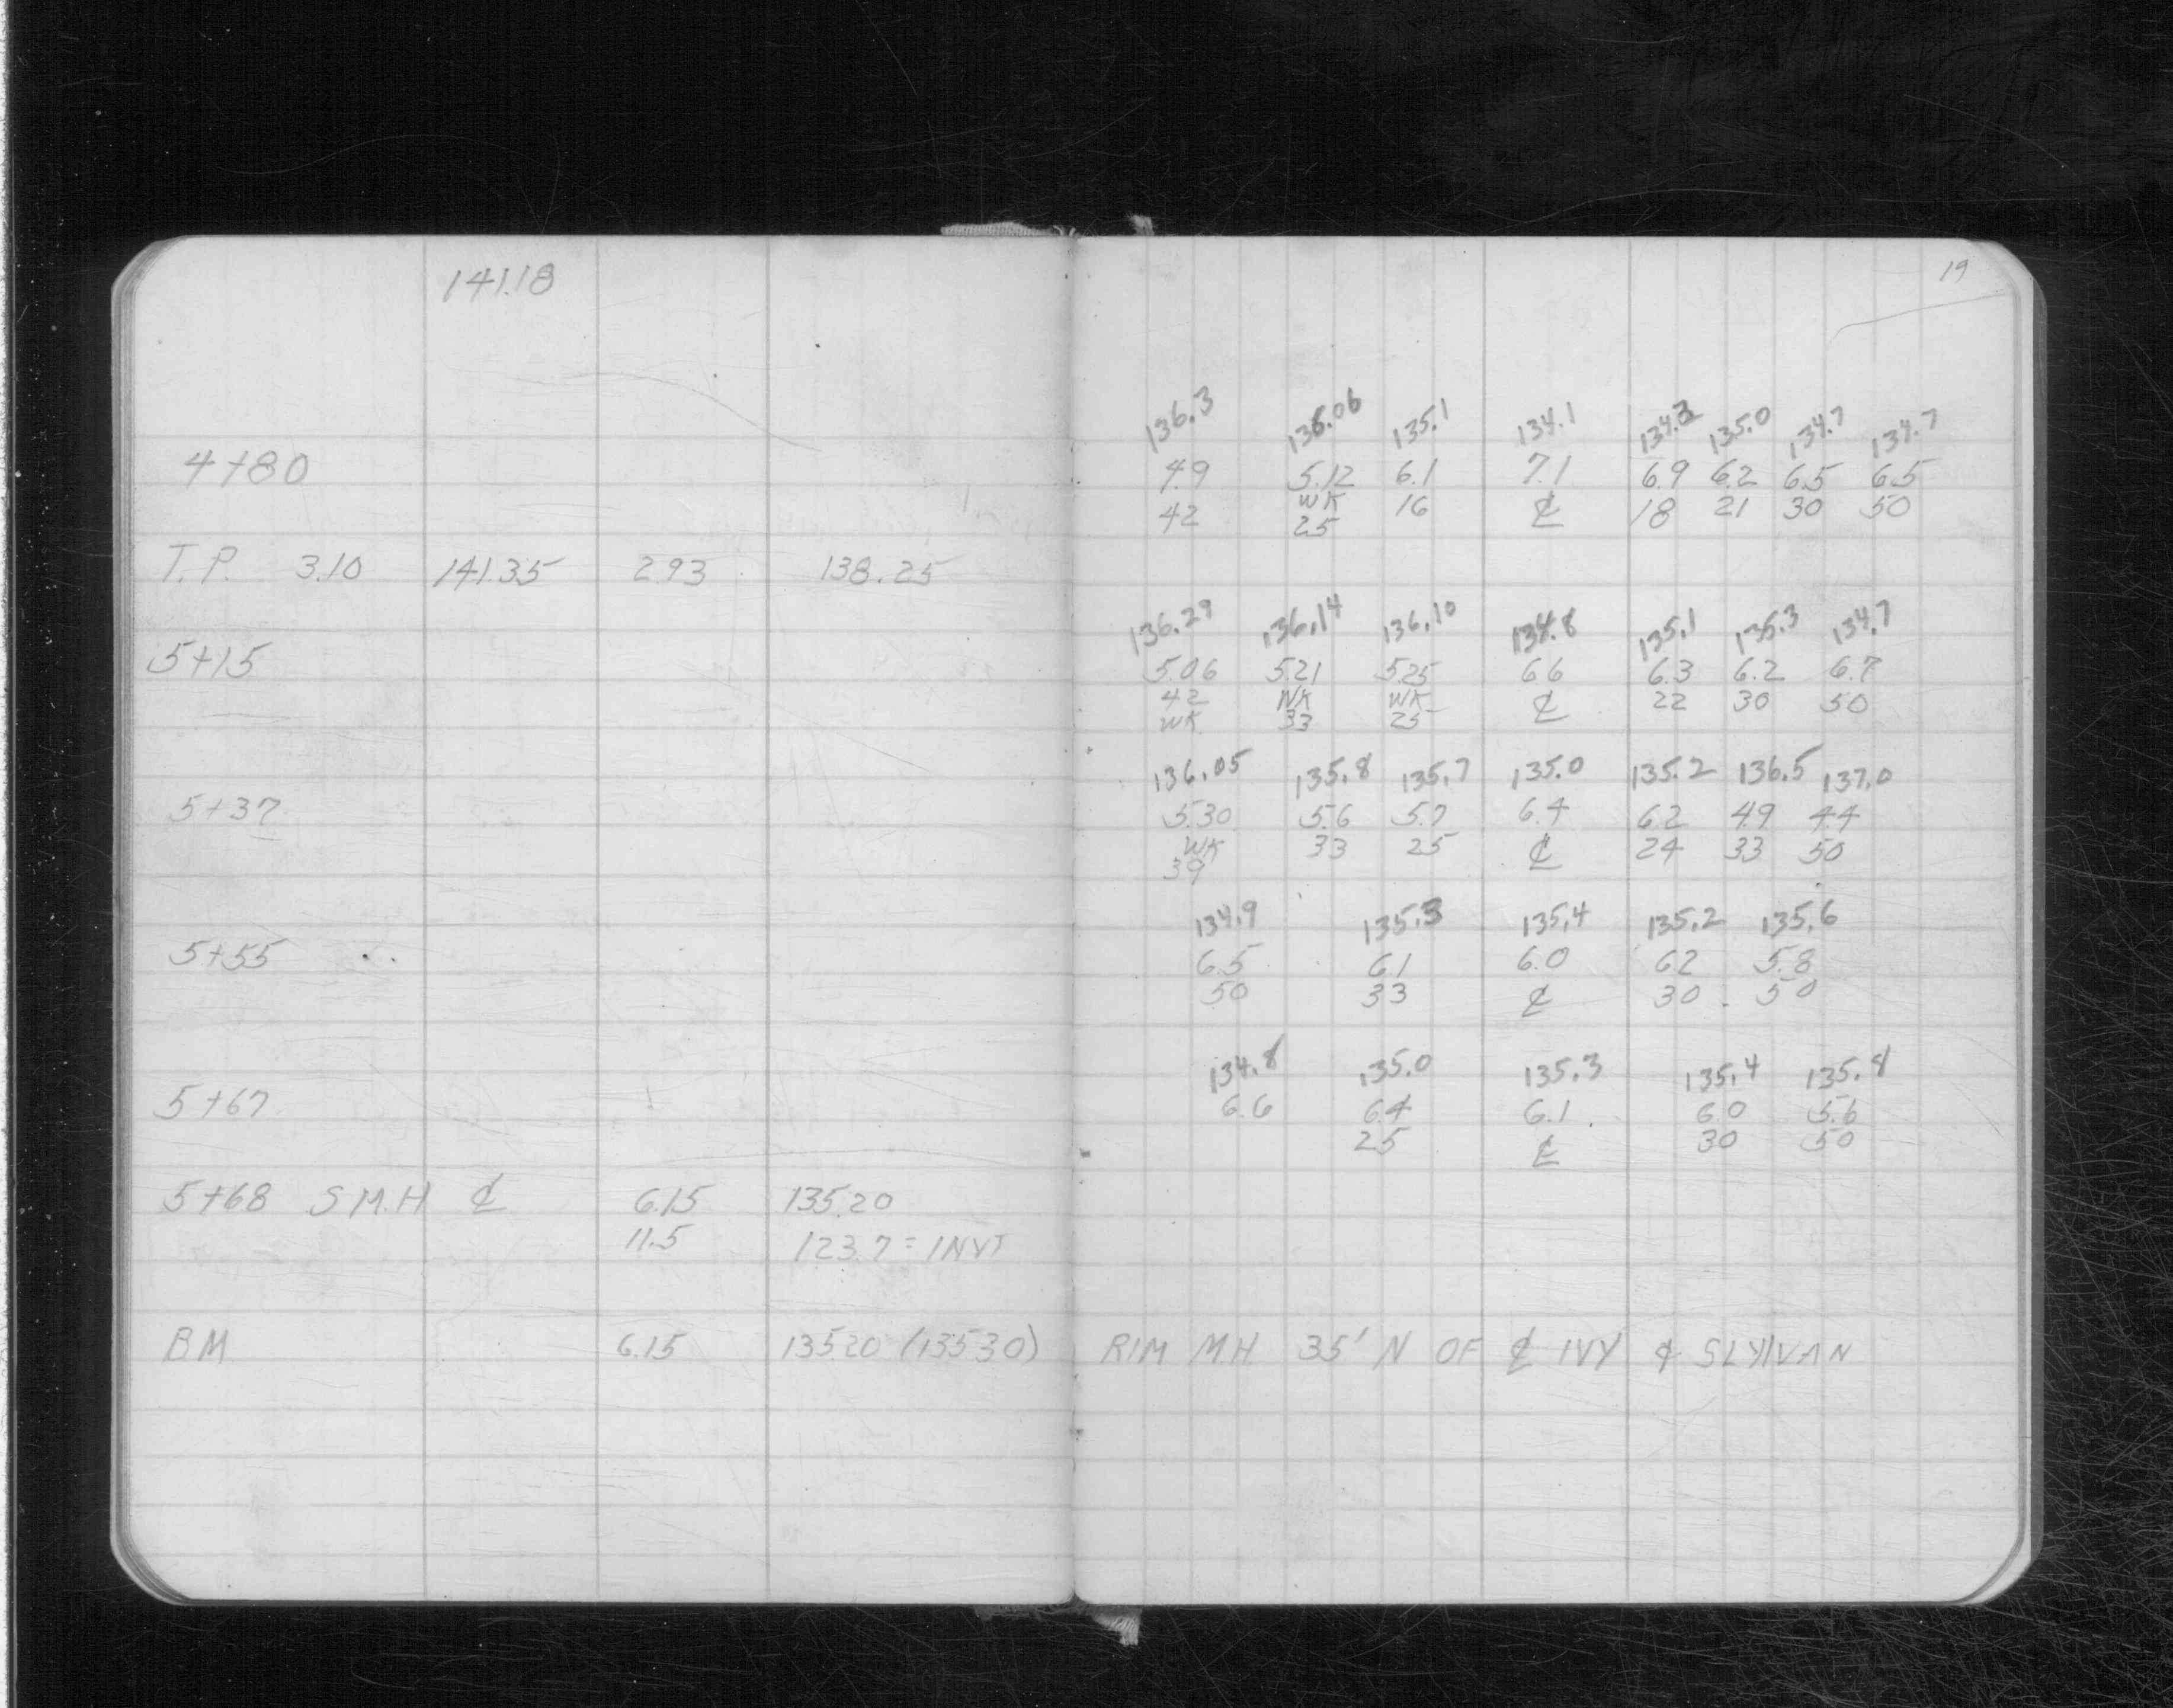 141.18
19
136.3 136.06 135.1 134.1 134.3 135.0 134.7 134.7
4+80 4.9 5.12 6.1 7.1 6.9 6.2 6.5 6.5
42 WK 16 ℄ 18 21 30 50
25
T.P. 3.10 141.35 2.93 138.25
136.29 136.14 136.10 134.8 135.1 135.3 134.7
5+15 5.06 5.21 5.25 6.6 6.3 6.2 6.7
42 WK WK ℄ 22 30 50
WK 33 25
136.05 135.8 135.7 135.0 135.2 136.5 137.0
5+37 5.30 5.6 5.7 6.4 6.2 4.9 4.4
WK 33 25 ℄ 24 33 50
39
134.9 135.3 135.4 135.2 135.6
5+55 6.5 6.1 6.0 6.2 5.8
50 33 ℄ 30 50
134.8 135.0 135.3 135.4 135.8
5+67 6.6 6.4 6.1 6.0 5.6
25 ℄ 30 50
5+68 S M.H ℄ 6.15 135.20
11.5 123.7 = INVT
BM 6.15 135.20 (135.30) RIM MH 35' N OF ℄ IVY & SLYIVAN